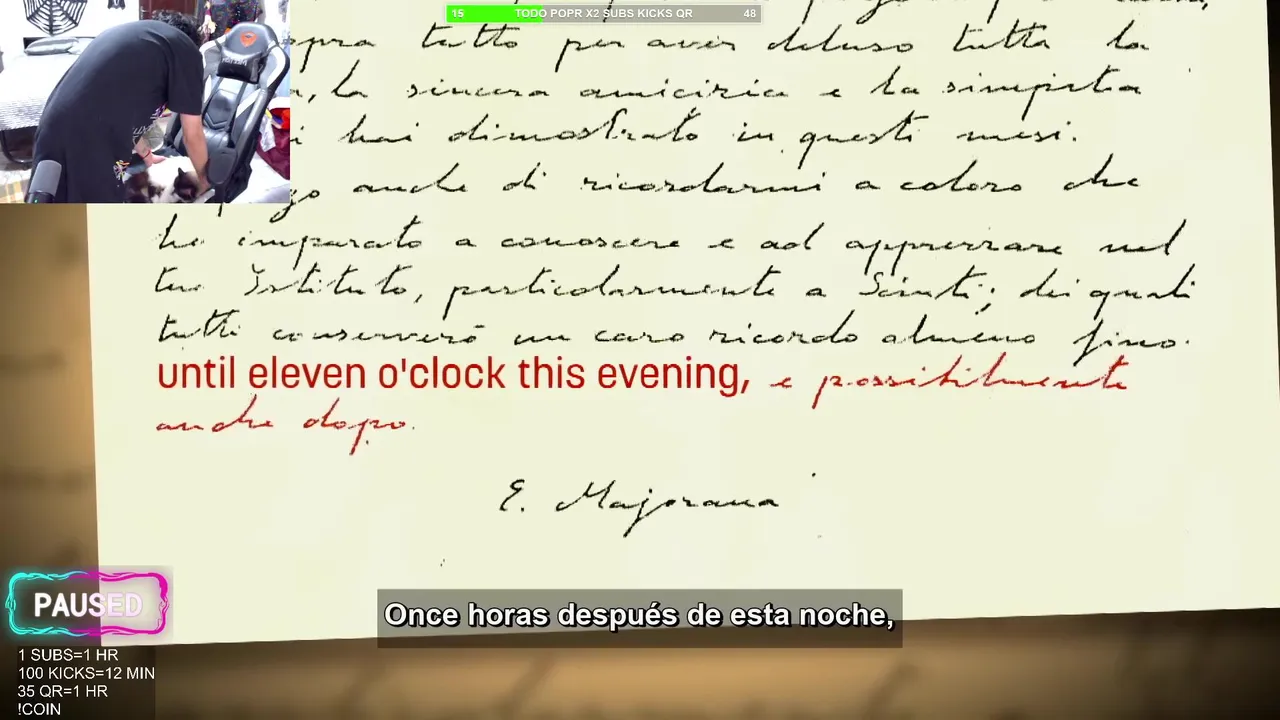 15 TODO POPR X2 SUBS KICKS QR 48
opra tutto per aver deluso tutta la
la sincera amicizia e la simpatia
i hai dimostrato in questi mesi.
anche di ricordarmi a coloro che
ho imparato a conoscere e ad apprezzare nel
tuo Istituto, particolarmente a Sciuti; dei quali
tutti conserverò un caro ricordo almeno fino
until eleven o'clock this evening, e possibilmente
anche dopo.
E. Majorana
PAUSED
Once horas después de esta noche,
1 SUBS=1 HR
100 KICKS=12 MIN
35 QR=1 HR
!COIN